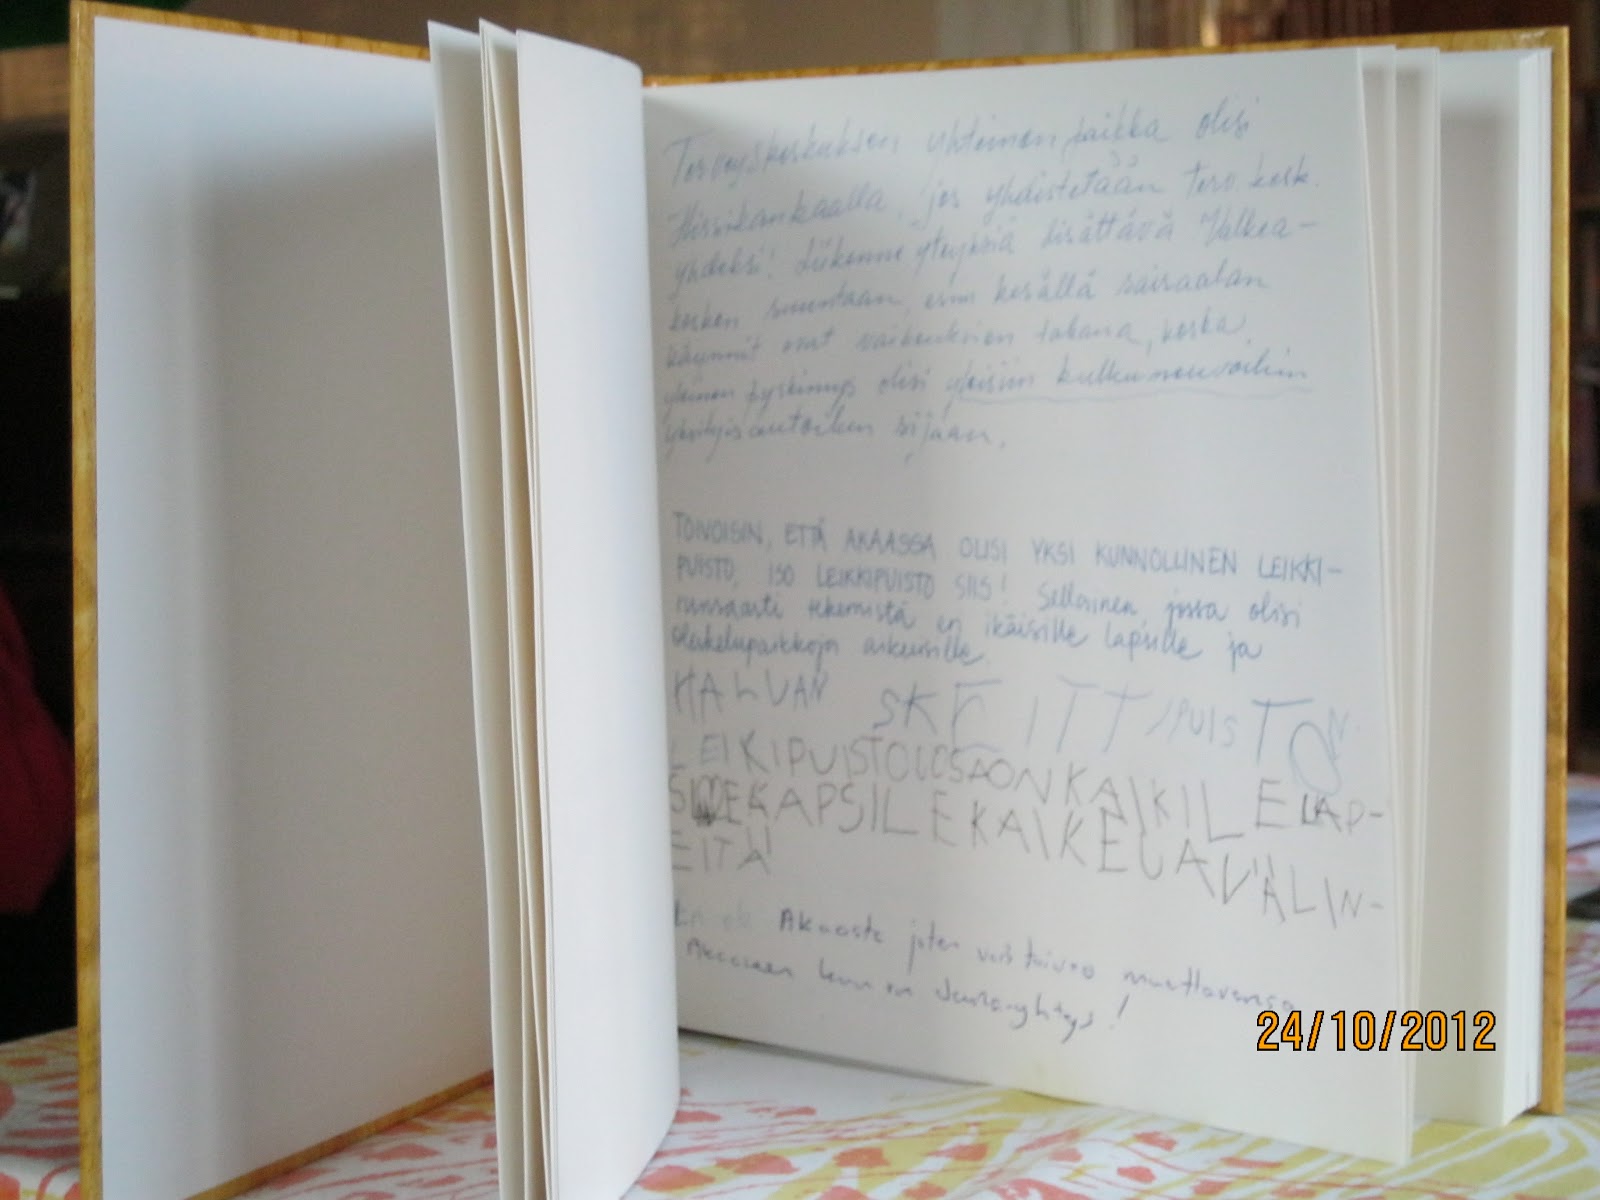 Terveyskeskuksen yhteinen paikka olisi
Hirsikankaalla, jos yhdistetään terv. kesk.
yhdeksi! Liikenneyteyksiä lisättävä Valkea-
kosken suuntaan, esim kesällä sairaalan
käynnit ovat vaikeuksien takana, koska
yleinen pyrkimys olisi yleisiin kulkuneuvoihin
yksityisautoilun sijaan.
TOIVOISIN, ETTÄ AKAASSA OLISI YKSI KUNNOLLINEN LEIKKI-
PUISTO, ISO LEIKKIPUISTO SIIS! Sellainen, jossa olisi
runsaasti tekemistä eri ikäisille lapsille ja
oleskelupaikkoja aikuisille.
HALUAN SKEITTIPUISTON.
LEIKIPUISTOJOSAONKAIKILELAP-
SILEKAPSILEKAIKEUAVÄLIN-
EITÄ
En ole Akaasta joten voin toivoo muuttavansa
Akaaseen kun on
24/10/2012